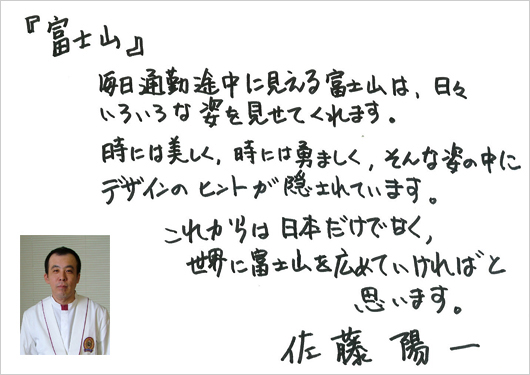 『富士山』
毎日通勤途中に見える富士山は、日々
いろいろな姿を見せてくれます。
時には美しく，時には勇ましく，そんな姿の中に
デザインのヒントが隠されています。
これからは日本だけでなく，
世界に富士山を広めていければと
思います。
佐藤陽一